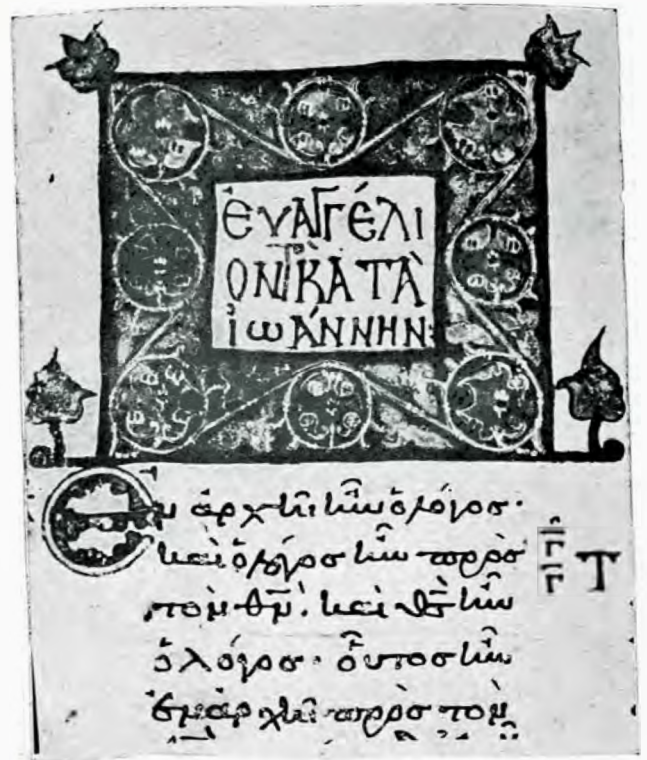 ἐυαγγέλι
ον κατὰ
ἰωάννην:
Ἐν ἀρχῆι ἦν ὁ λόγος·
και ὁ λόγος ἦν πρὸς
τὸν θν̄. και θς̄ ἦν
ὁ λόγος· οὗτος ἦν
ἐν ἀρχῆι πρὸς τὸν